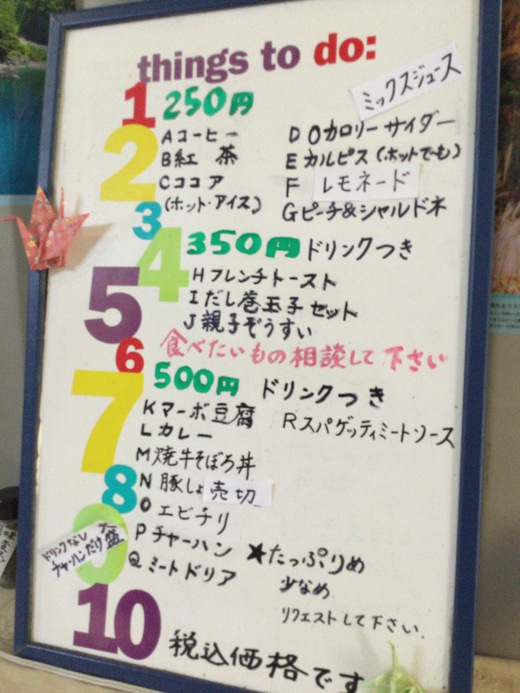 things to do:
1 250円
ミックスジュース
2
Aコーヒー
B紅 茶
Cココア
(ホット・アイス)
D 0カロリーサイダー
E カルピス(ホットでも)
F レモネード
Gピーチ&シャルドネ
3
4 350円ドリンクつき
Hフレンチトースト
Iだし巻玉子セット
J親子ぞうすい
5
食べたいもの相談して下さい
6
7 500円 ドリンクつき
Kマーボ豆腐
Lカレー
M焼牛そぼろ丼
N豚しょ 売切
Oエビチリ
Pチャーハン
Qミートドリア
Rスパゲッティミートソース
8
9
ドリンクなし
チャーハンだけ大盛
★たっぷりめ
少なめ
リクエストして下さい。
10 税込価格です